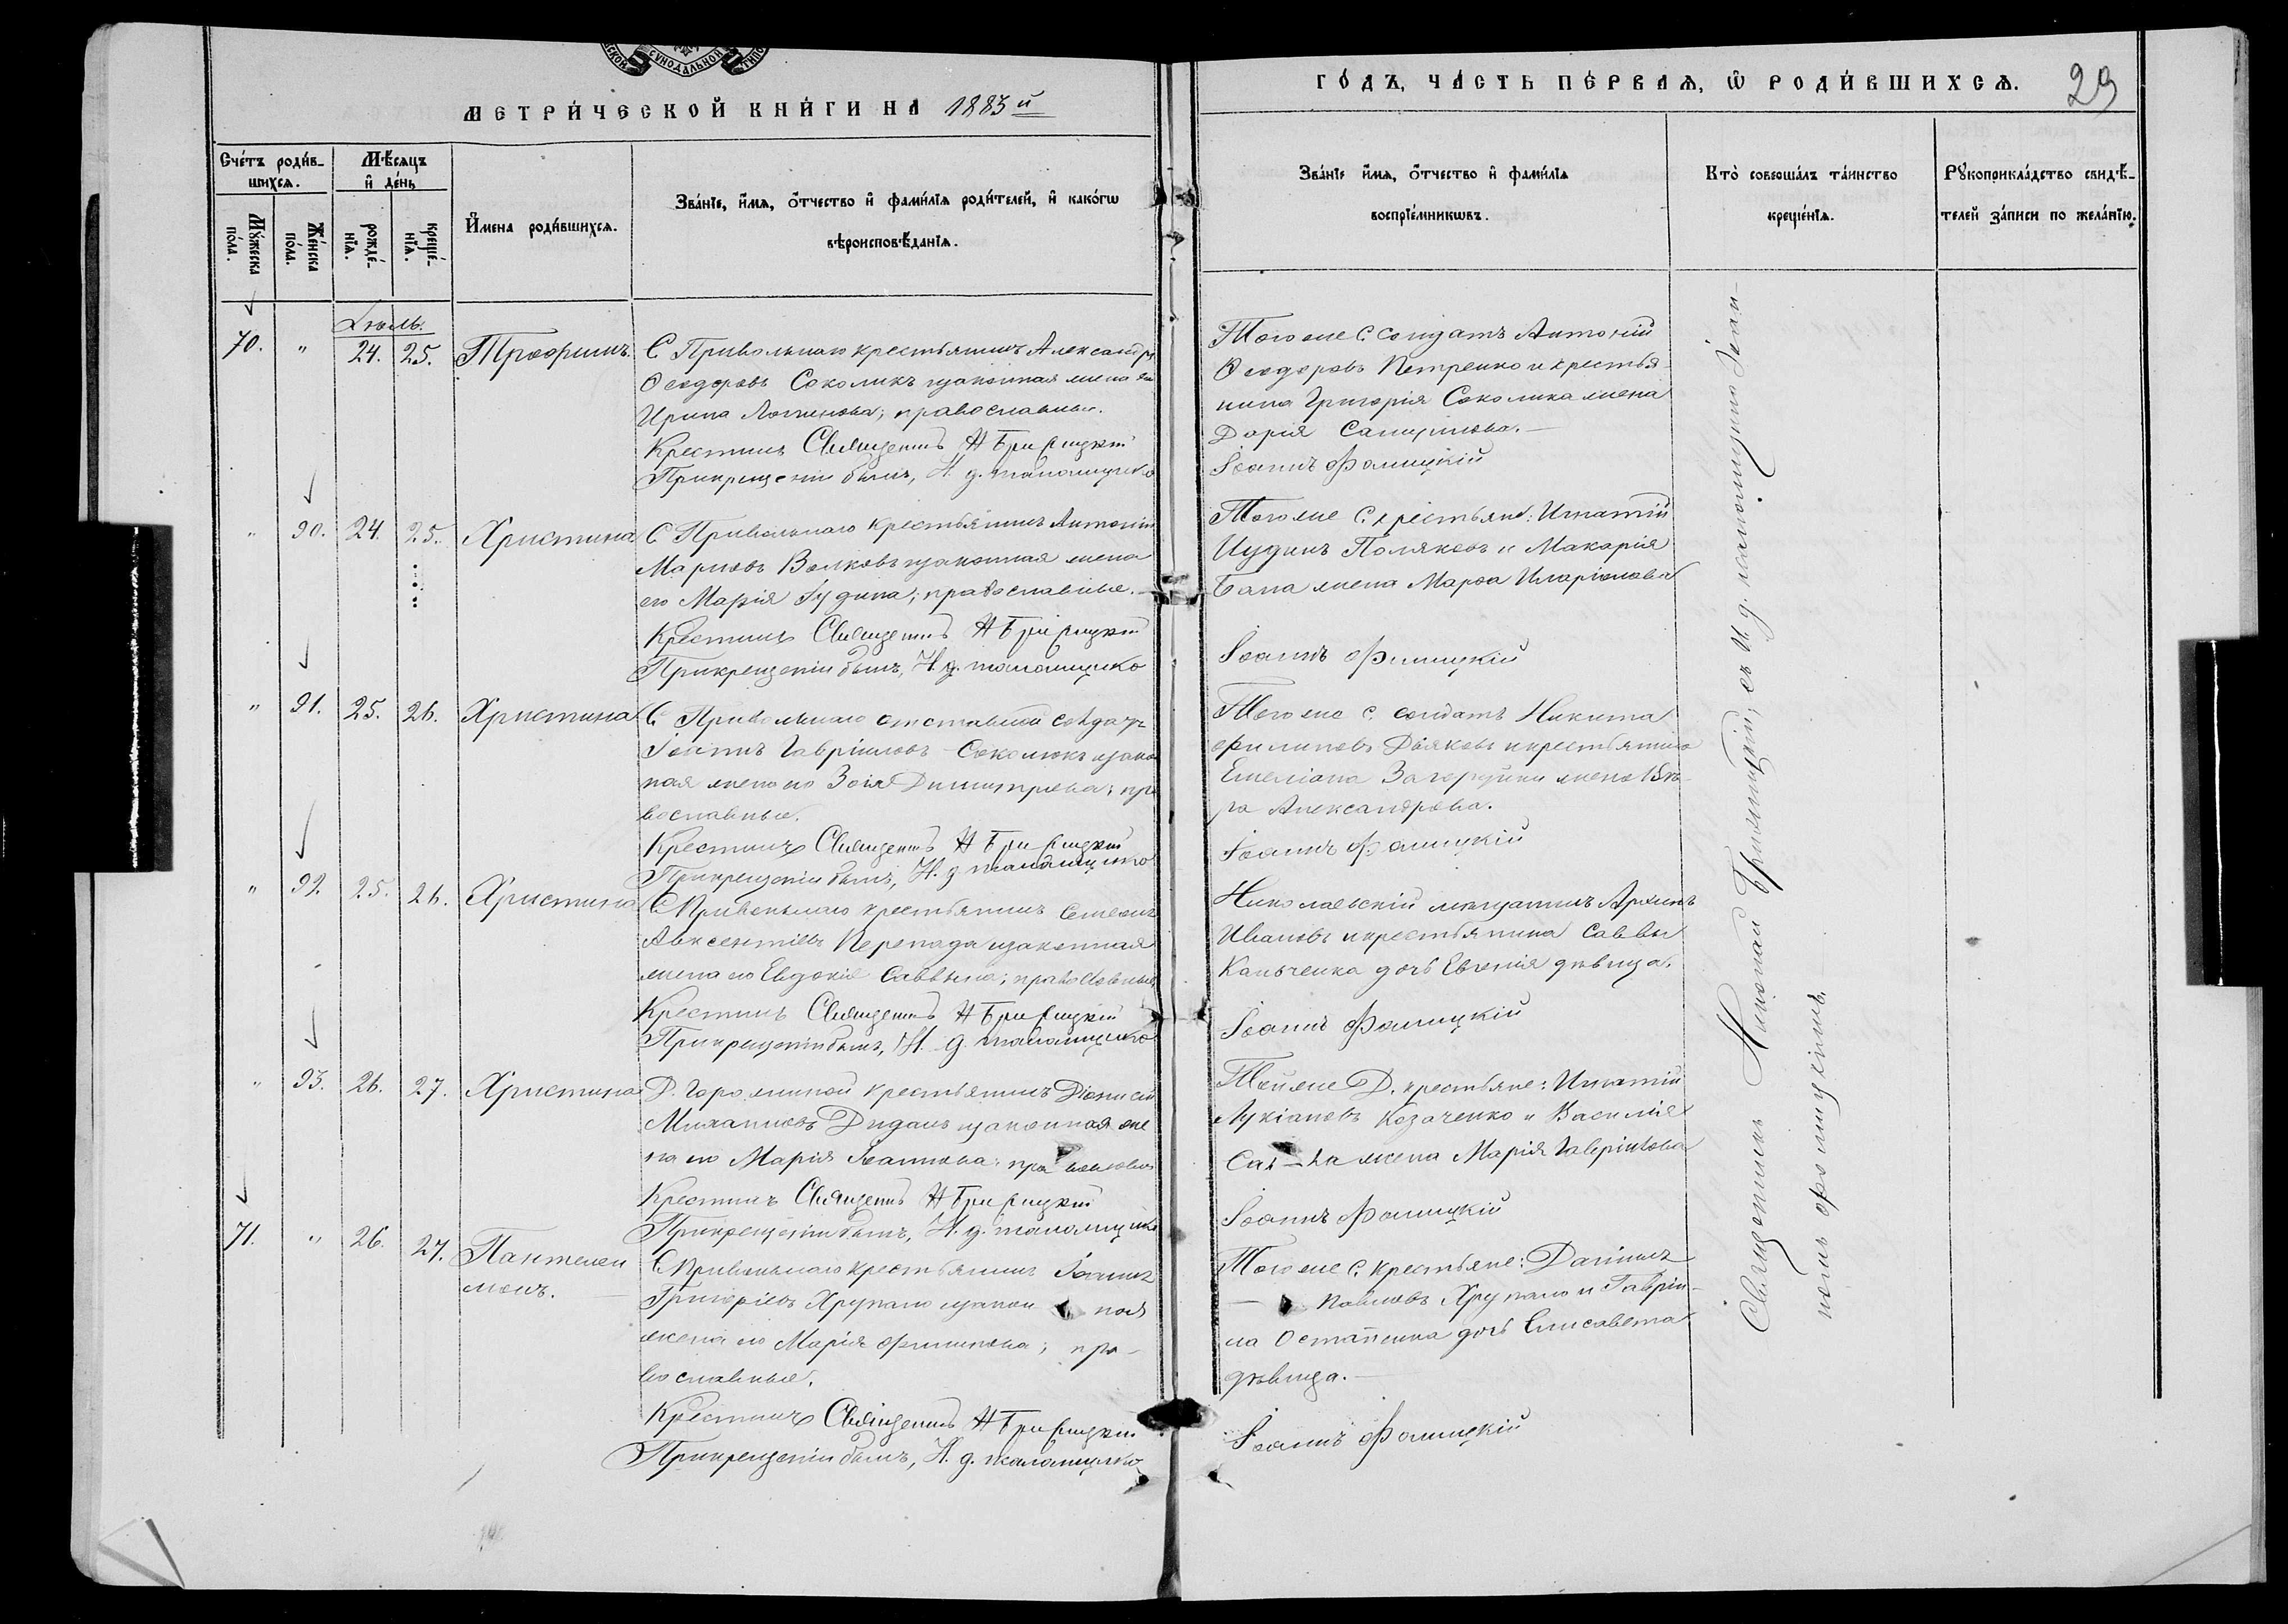 МЕТРИЧЕСКОЙ КНИГИ НА 1883 й
ГОДЪ, ЧАСТЬ ПЕРВАЯ, Ѿ РОДИВШИХСЯ.
29
Счетъ родив-
шихся.
Мужеска
пола.
Женска
пола.
Мѣсяцъ
и день
рожде-
нїя.
креще-
нїя.
Имена родившихся.
Званїе, имя, отчество и фамилїя родителей, и какогѡ
вѣроисповѣданїя.
Званїе имя, отчество и фамилїя
воспрїемникѡвъ.
Кто совершалъ таинство
крещенїя.
Рукоприкладство свидѣ-
телей записи по желанїю.
Іюль.
70. " 24. 25. Трофимъ.
С Привольнаго крестьянинъ Александръ
Ѳеодоровъ Соколикъ изаконная жена его
Ирина Логинова; православные.
Крестилъ Священикъ Н
Прикрещеніи былъ, И. д. псаломщика
Тогоже С. солдатъ Антоній
Ѳеодоровъ Петренко и крестья-
нина Григорія Соколика жена
Дарія
Іоаннъ
" 90. 24. 25. Христина
С Привольнаго крестьянинъ Антоній
Марковъ Волковъ изаконная жена
его Марія Іудина; православные.
Крестилъ Священикъ Н
Прикрещеніи былъ, И. д. псаломщика
Тогоже С. крестьяне: Игнатій
Иудинъ Поляковъ и Макарія
Бана жена Марѳа Иларіонова
Іоаннъ
" 91. 25. 26. Христина
С Привольнаго отставной солдатъ
Іоаннъ Гавріиловъ Соколюкъ изакон
ная жена его Зоія Димитріева; пра
вославные.
Крестилъ Священикъ Н
Прикрещеніи былъ, И. д. псаломщика
Тогоже С. солдатъ Никита
Филиповъ Дьяковъ икрестьянина
Емеліана Загородни жена Вѣ-
ра Александрова.
Іоаннъ
" 92 25. 26. Христина
С Привольнаго крестьянинъ Семеонъ
Авксентіевъ Перепада изаконная
жена его Евдокія Саввына; православные.
Крестилъ Священикъ Н
Прикрещеніи былъ, И. д. псаломщика
Николаевскій мѣщанинъ Архипъ
Ивановъ икрестьянина Саввы
Кальченка дочь Евгенія дѣвица.
Іоаннъ
" 93. 26. 27. Христина
Д. Горожиной крестьянинъ Діонисій
Михаиловъ Дидашъ изаконная же
на его Марія Іоаннова; православные
Крестилъ Священикъ Н
Прикрещеніи былъ, И. д. псаломщика
Тойже Д. крестьяне: Игнатій
Лукіановъ Козаченко и Василія
жена Марія Гавріилова
Іоаннъ
71. " 26. 27. Пантелеи
монъ.
С Привольнаго крестьянинъ Іоаннъ
Григоріевъ Хрупало изакон ная
жена его Марія Филипова; пра-
вославные.
Крестилъ Священикъ Н
Прикрещеніи былъ, И. д. псаломщика
Тогоже С. крестьяне: Даніилъ
Павловъ Хрупало и Гавріи-
ла Остапенка дочь Елисавета
дѣвица.
Іоаннъ
Священникъ Николай съ И. д. псаломщика Іоан-
номъ